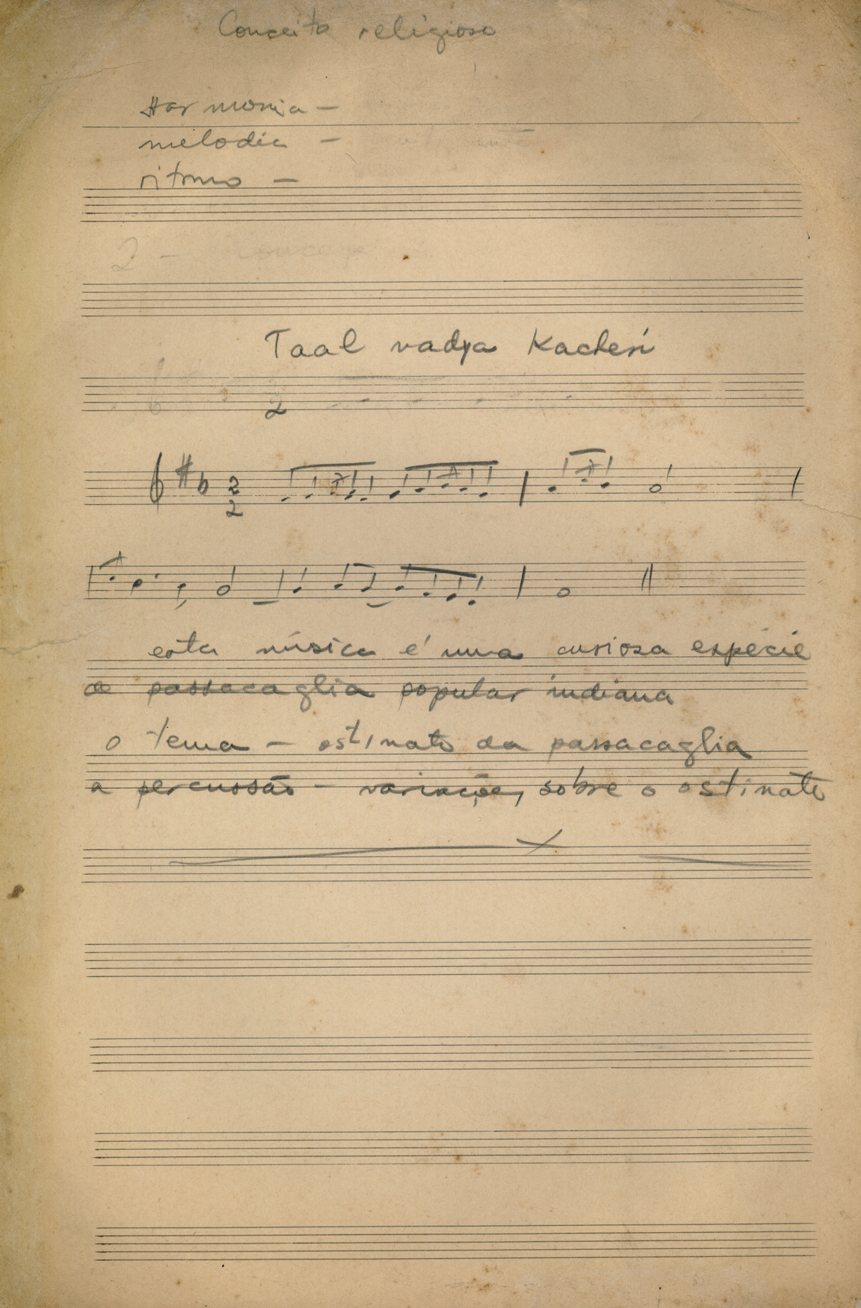 Conceito religioso
Harmonia —
melodia —
ritmo —
2 -
Taal vadya Kacheri
2
2
2
esta música é uma curiosa espécie
de passacaglia popular indiana
o tema — ostinato da passacaglia
a percussão — variações sobre o ostinato